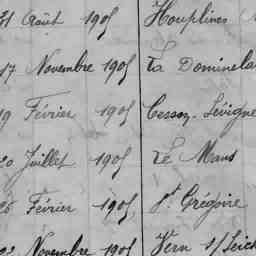 31 Août 1905 Houplines
17 Novembre 1905 La Dominela
19 Février 1905 Cesson-Sévigné
20 Juillet 1905 Le Mans
26 Février 1905 St Grégoire
22 Novembre 1905 Vern s/Seich